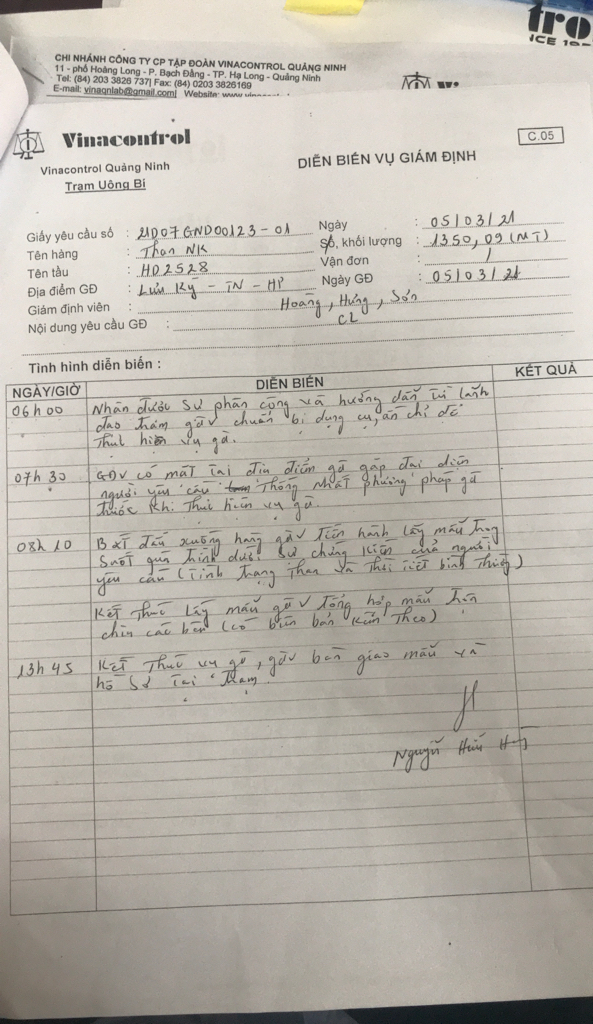 tro
ICE 195
CHI NHÁNH CÔNG TY CP TẬP ĐOÀN VINACONTROL QUẢNG NINH
11 - phố Hoàng Long - P. Bạch Đằng - TP. Hạ Long - Quảng Ninh
Tel: (84) 203 3826 737| Fax: (84) 0203 3826169
E-mail: vinaqnlab@gmail.com| Website:
Vinacontrol
C.05
Vinacontrol Quảng Ninh
DIỄN BIẾN VỤ GIÁM ĐỊNH
Trạm Uông Bí
Giấy yêu cầu số : 21D07GND00123-01 Ngày : 05/03/21
Tên hàng : Than NK Số, khối lượng : 1350,09 (MT)
Tên tàu : HD2528 Vận đơn : /
Địa điểm GĐ : Lưu Kỳ - TN - HP Ngày GĐ : 05/03/21
Giám định viên : Hoàng, Hưng, Sơn
Nội dung yêu cầu GĐ : CL
Tình hình diễn biến :
NGÀY/GIỜ DIỄN BIẾN KẾT QUẢ
06h00 Nhận được sự phân công và hướng dẫn từ lãnh
đạo trạm gđv chuẩn bị dụng cụ, ấn chỉ để
thực hiện vụ gđ.
07h30 GĐV có mặt tại địa điểm gđ gặp đại diện
người yêu cầu thống nhất phương pháp gđ
trước khi thực hiện vụ gđ.
08h10 Bắt đầu xuống hàng gđv tiến hành lấy mẫu trong
suốt quá trình dưới sự chứng kiến của người
yêu cầu (tình trạng than và thời tiết bình thường)
Kết thúc lấy mẫu gđv tổng hợp mẫu trộn
chia các bên (có biên bản kèm theo)
13h45 Kết thúc vụ gđ, gđv bàn giao mẫu và
hồ sơ tại trạm.
Nguyễn Hữu